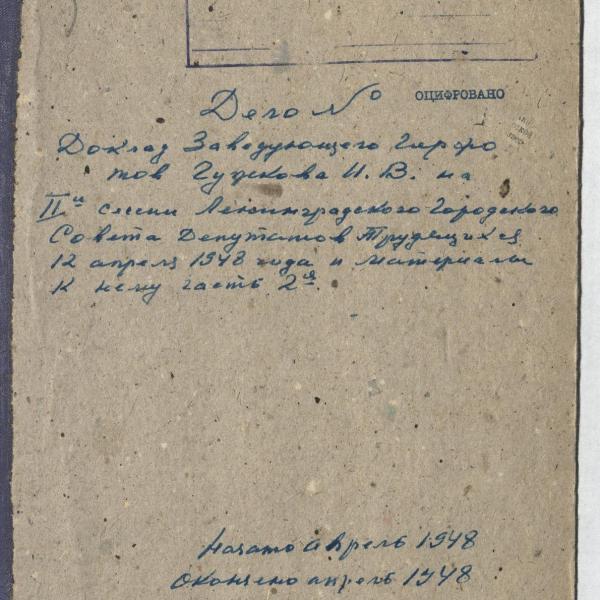 ОЦИФРОВАНО
Дело №
Доклад Заведующего Горфо
тов Гужкова И. В. на
IIй сессии Ленинградского Городского
Совета Депутатов Трудящихся
12 апреля 1948 года и материалы
к нему часть 2я.
Начато апрель 1948
Окончено апрель 1948